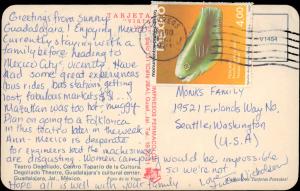 TARJETA
Greetings from sunny
Guadalajara! Enjoying Mexico
currently staying with a
family before heading to
Mexico City's vicinity. Have
had some great experiences
bus rides, bus stations, getting
lost, fabulous markets $$...
Mazatlan was too hot + muggy.
Plan on going to a Folklorica
in this teatro later in the week.
Ann- Mexico is desperate
for engineers but the machismos
are disgusting. Women campers would be impossible
so we're not.
Hope all is well with your family
Love,
Teatro Degollado, Centro Tapatio de la Cultura.
Degollado Theatre, Guadalajara's cultural center.
Guadalajara, Jal., México.
4.00
V1454
MONKS FAMILY
19521 Firlands Way No.
Seattle, Washington
(U.S.A)